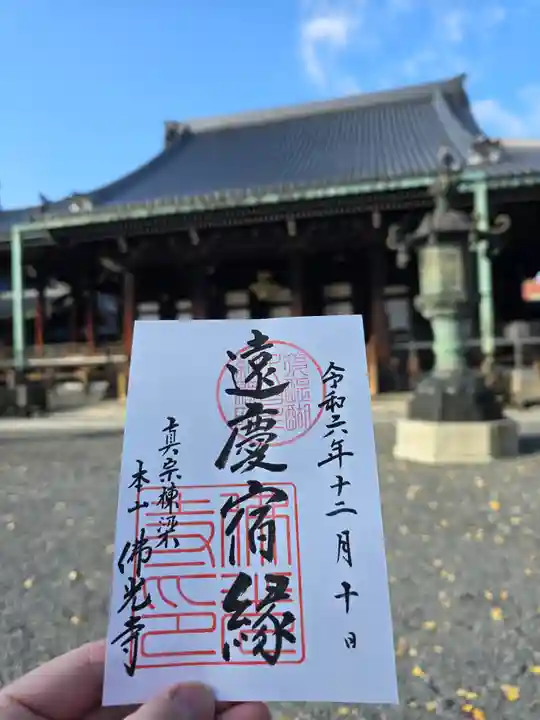 令和六年十二月十日
遠慶宿縁
真宗棟梁
本山佛光寺